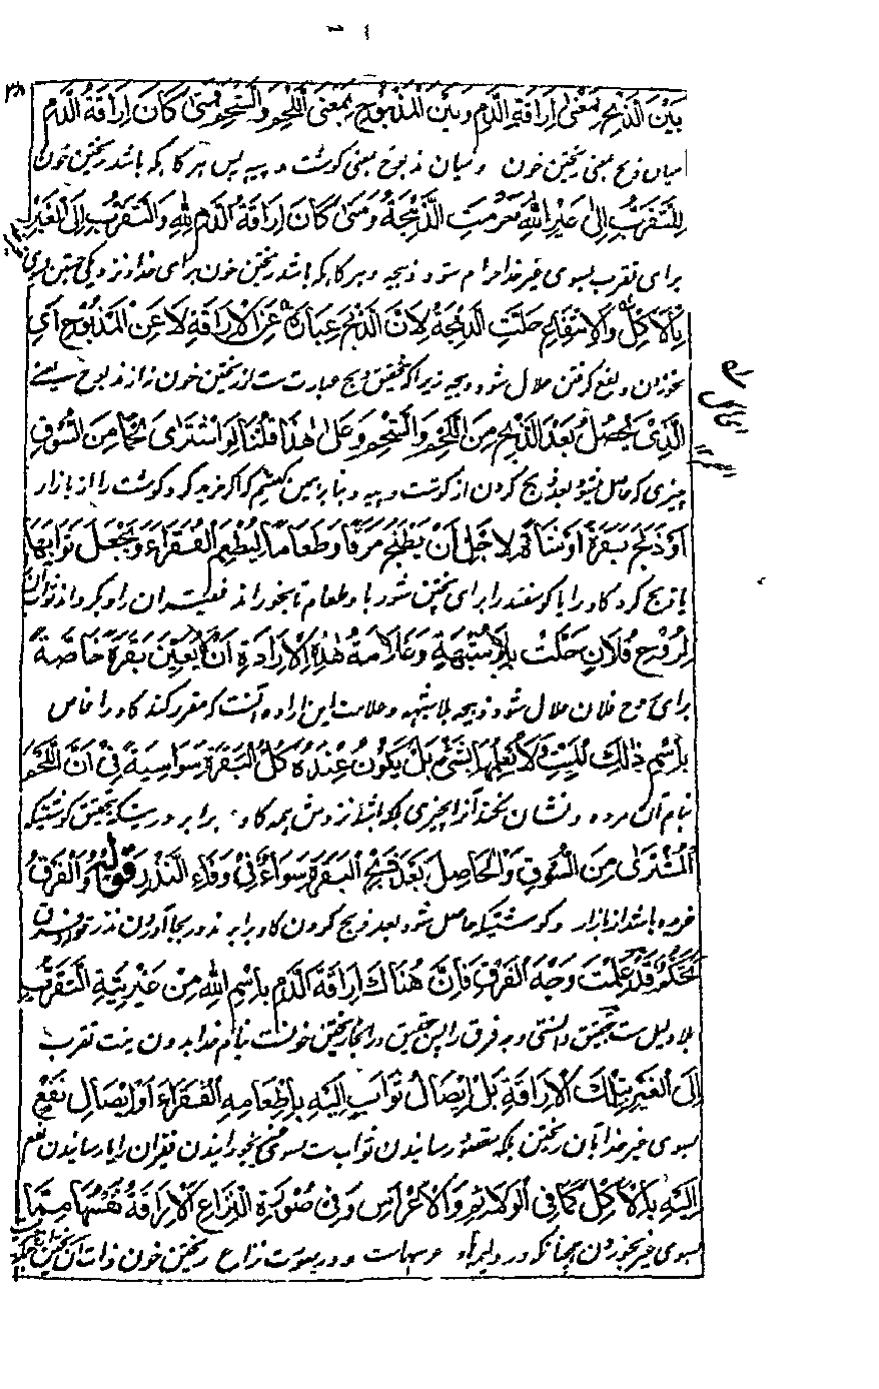 بَيْنَ الذَّبْحِ بِمَعْنٰى إِرَاقَةِ الدَّمِ وَبَيْنَ الْمَذْبُوْحِ بِمَعْنَى اللَّحْمِ وَالشَّحْمِ فَمَتٰى كَانَ إِرَاقَةُ الدَّمِ
میان ذبح بمعنی ریختن خون و میان مذبوح بمعنی گوشت و پیه پس هر گاه که باشد ریختن خون
لِلتَّقَرُّبِ إِلٰى غَيْرِ اللّٰهِ حَرُمَتِ الذَّبِيْحَةُ وَمَتٰى كَانَ إِرَاقَةُ الدَّمِ لِلّٰهِ وَالتَّقَرُّبُ إِلَى الْغَيْرِ
برای تقرب بسوی غیر خدا حرام شود ذبیحه و هر گاه که باشد ریختن خون برای خدا و نزدیکی جستن
بِالْأَكْلِ وَالْاِنْتِفَاعِ حَلَّتِ الذَّبِيْحَةُ لِأَنَّ الذَّبْحَ عِبَارَةٌ عَنِ الْإِرَاقَةِ لَا عَنِ الْمَذْبُوْحِ أَيِ
بخوردن و نفع گرفتن حلال شود ذبیحه زیرا که تحقیق ذبح عبارت ست از ریختن خون نه از مذبوح یعنے
الَّذِيْ يَحْصُلُ بَعْدَ الذَّبْحِ مِنَ اللَّحْمِ وَالشَّحْمِ وَعَلٰى هٰذَا قُلْنَا لَوِ اشْتَرٰى لَحْمًا مِنَ السُّوْقِ
چیزی که حاصل میشود بعد ذبح کردن از گوشت و پیه و بنا برهمین گفتیم که اگر خرید کرد گوشت را از بازار
أَوْ ذَبَحَ بَقَرَةً أَوْ شَاةً لِأَجْلِ أَنْ يَطْبُخَ مَرَقًا وَطَعَامًا لِيُطْعِمَ الْفُقَرَاءَ وَيَجْعَلَ ثَوَابَهَا
یا ذبح کرد گاو را یا گوسفند را برای پختن شوربا و طعام تا بخوراند فقیران را و گرداند ثواب آن
لِرُوْحِ فُلَانٍ حَلَّتْ بِلَا شُبْهَةٍ وَعَلَامَةُ هٰذِهِ الْإِرَادَةِ أَنْ يُعَيِّنَ بَقَرَةً خَاصَّةً
برای روح فلان حلال شود ذبیحه بلا شبهه و علامت این اراده آنست که مقرر کند گاو را خاص
بِاسْمِ ذٰلِكَ الْمَيِّتِ وَلَا يُعْلِمَهَا بِشَيْءٍ بَلْ يَكُوْنُ عِنْدَهُ كُلُّ الْبَقَرَةِ سَوَاسِيَةً فِيْ أَنَّ اللَّحْمَ
بنام آن مرده و نشان نکند آنرا بچیزی بلکه باشد نزدش همه گاو برابر درینکه تحقیق گوشتیکه
الْمُشْتَرٰى مِنَ السُّوْقِ وَالْحَاصِلَ بَعْدَ ذَبْحِ الْبَقَرَةِ سَوَاءٌ فِيْ وَفَاءِ النَّذْرِ قوله وَالْفَرْقُ
خریده باشد از بازار و گوشتیکه حاصل شود بعد ذبح کردن گاو برابرند در بجا آوردن نذر
تَحَكُّمٌ قَدْ عَلِمْتَ وَجْهَ الْفَرْقِ فَإِنَّ هُنَاكَ إِرَاقَةَ الدَّمِ بِاسْمِ اللّٰهِ مِنْ غَيْرِ نِيَّةِ التَّقَرُّبِ
بلا دلیل ست تحقیق دانستی وجه فرق را پس تحقیق در آنجا ریختن خونست بنام خدا بدون نیت تقرب
إِلَى الْغَيْرِ بِتِلْكَ الْإِرَاقَةِ بَلْ إِيْصَالُ ثَوَابٍ إِلَيْهِ بِإِطْعَامِهِ الْفُقَرَاءَ أَوْ إِيْصَالِ نَفْعٍ
بسوی غیر خدا بآن ریختن بلکه مقصود رسانیدن ثواب ست بسوی بخورانیدن فقیران را یا رسانیدن نفع
إِلَيْهِ بِالْأَكْلِ كَمَا فِي الْوَلَائِمِ وَالْأَعْرَاسِ وَفِيْ صُوْرَةِ النِّزَاعِ الْإِرَاقَةُ نَفْسُهَا مِمَّا
بسوی غیر بخوردن چنانکه در ولیمها و عرسهاست و در صورت نزاع ریختن خون ذات آن